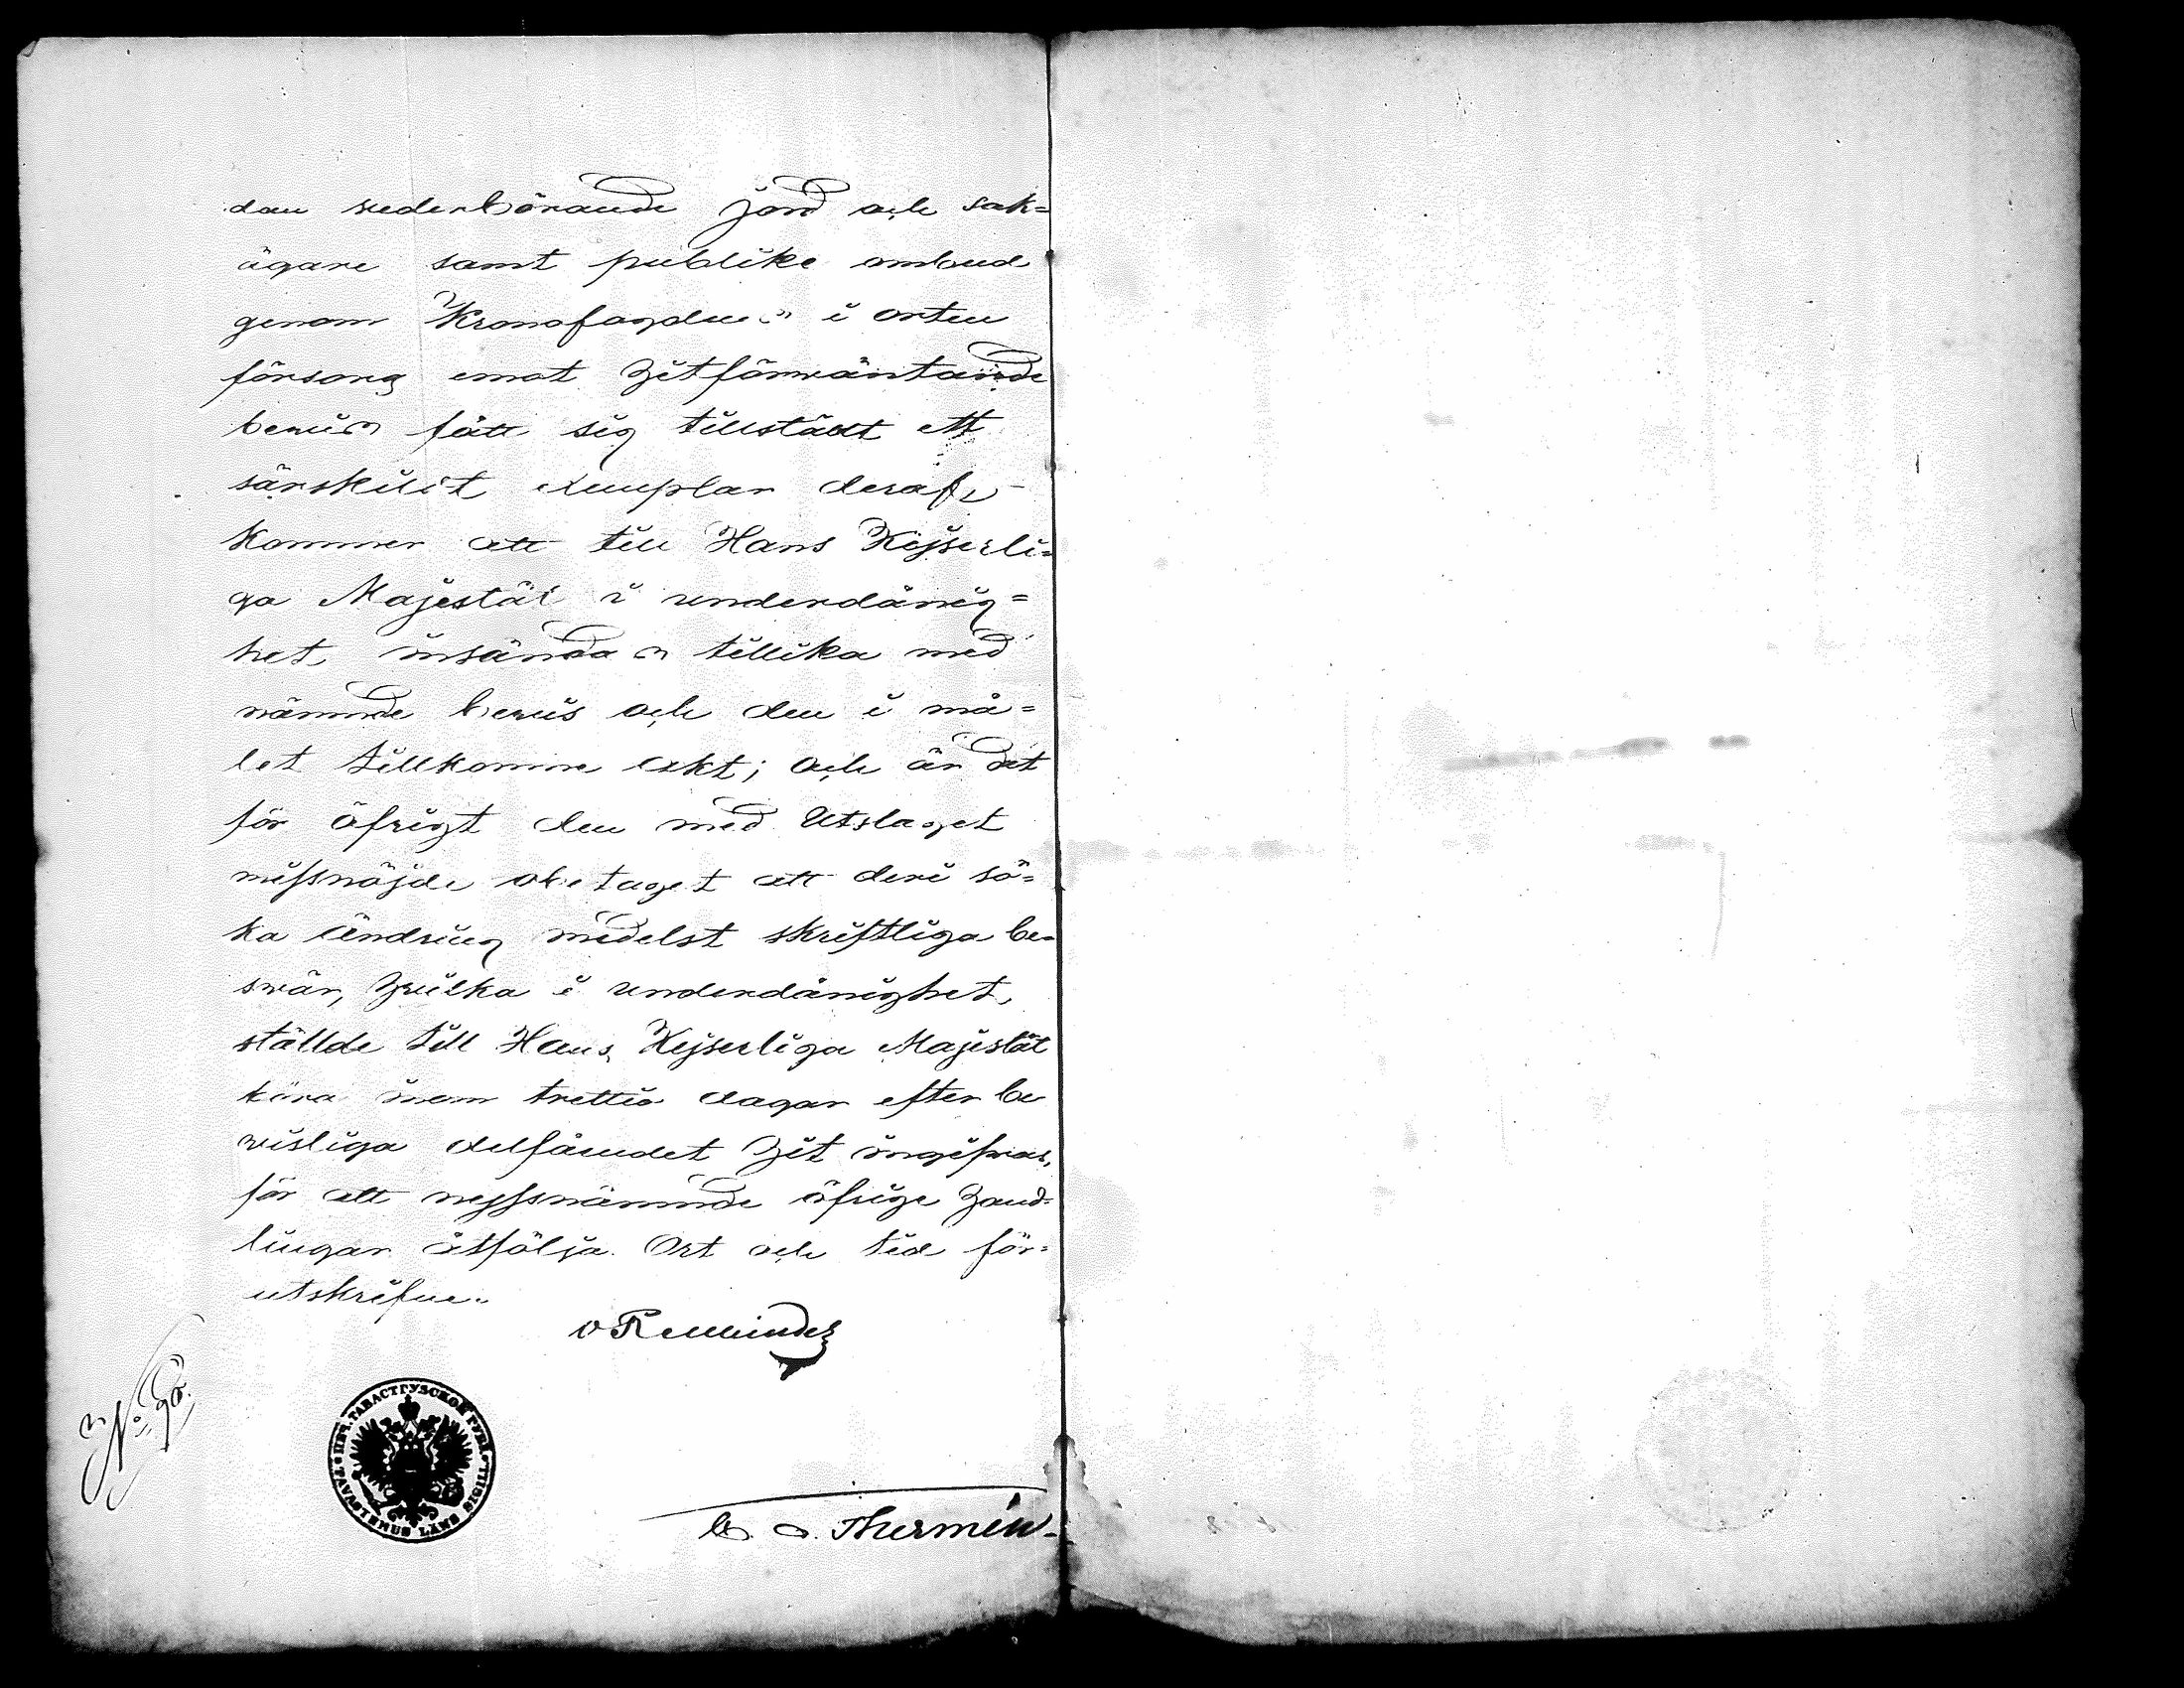 dan vederbörande Jord och sak=
ägare samt publike ombud
genom Kronofogdens i orten
försorg emot hitförväntande
bevis fått sig tillstäldt ett
särskildt exemplar deraf
kommer att till Hans Kejserli=
ga Majestät i underdånig=
het insändas tillika med
nämnde bevis och den i må=
let tillkomne akt; och är det
för öfrigt den med Utslaget
missnöjde obetaget att deri sö=
ka ändring medelst skriftliga be=
svär, hvilka i underdånighet,
ställde till Hans Kejserliga Majestät
böra inom trettio dagar efter be
visliga delfåendet hit ingifvas,
för att nyssnämnde öfrige hand=
lingar åtfölja. Ort och tid för=
utskrifne.
Rehbinder
N:o 90.
ПЕЧ. ТАВАСТГУССКОЙ ГУБ.
TAVASTEHUS LÄNS SIGILL
Thermén